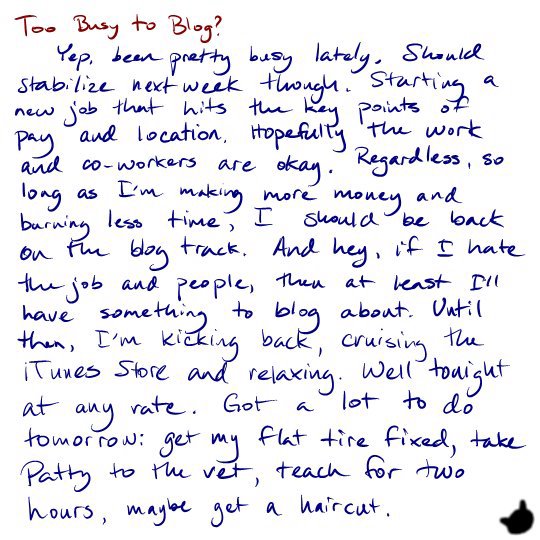 Too Busy to Blog?
Yep, been pretty busy lately. Should
stabilize next week though. Starting a
new job that hits the key points of
pay and location. Hopefully the work
and co-workers are okay. Regardless, so
long as I'm making more money and
burning less time, I should be back
on the blog track. And hey, if I hate
the job and people, then at least I'll
have something to blog about. Until
then, I'm kicking back, cruising the
iTunes Store and relaxing. Well tonight
at any rate. Got a lot to do
tomorrow: get my flat tire fixed, take
Patty to the vet, teach for two
hours, maybe get a haircut.